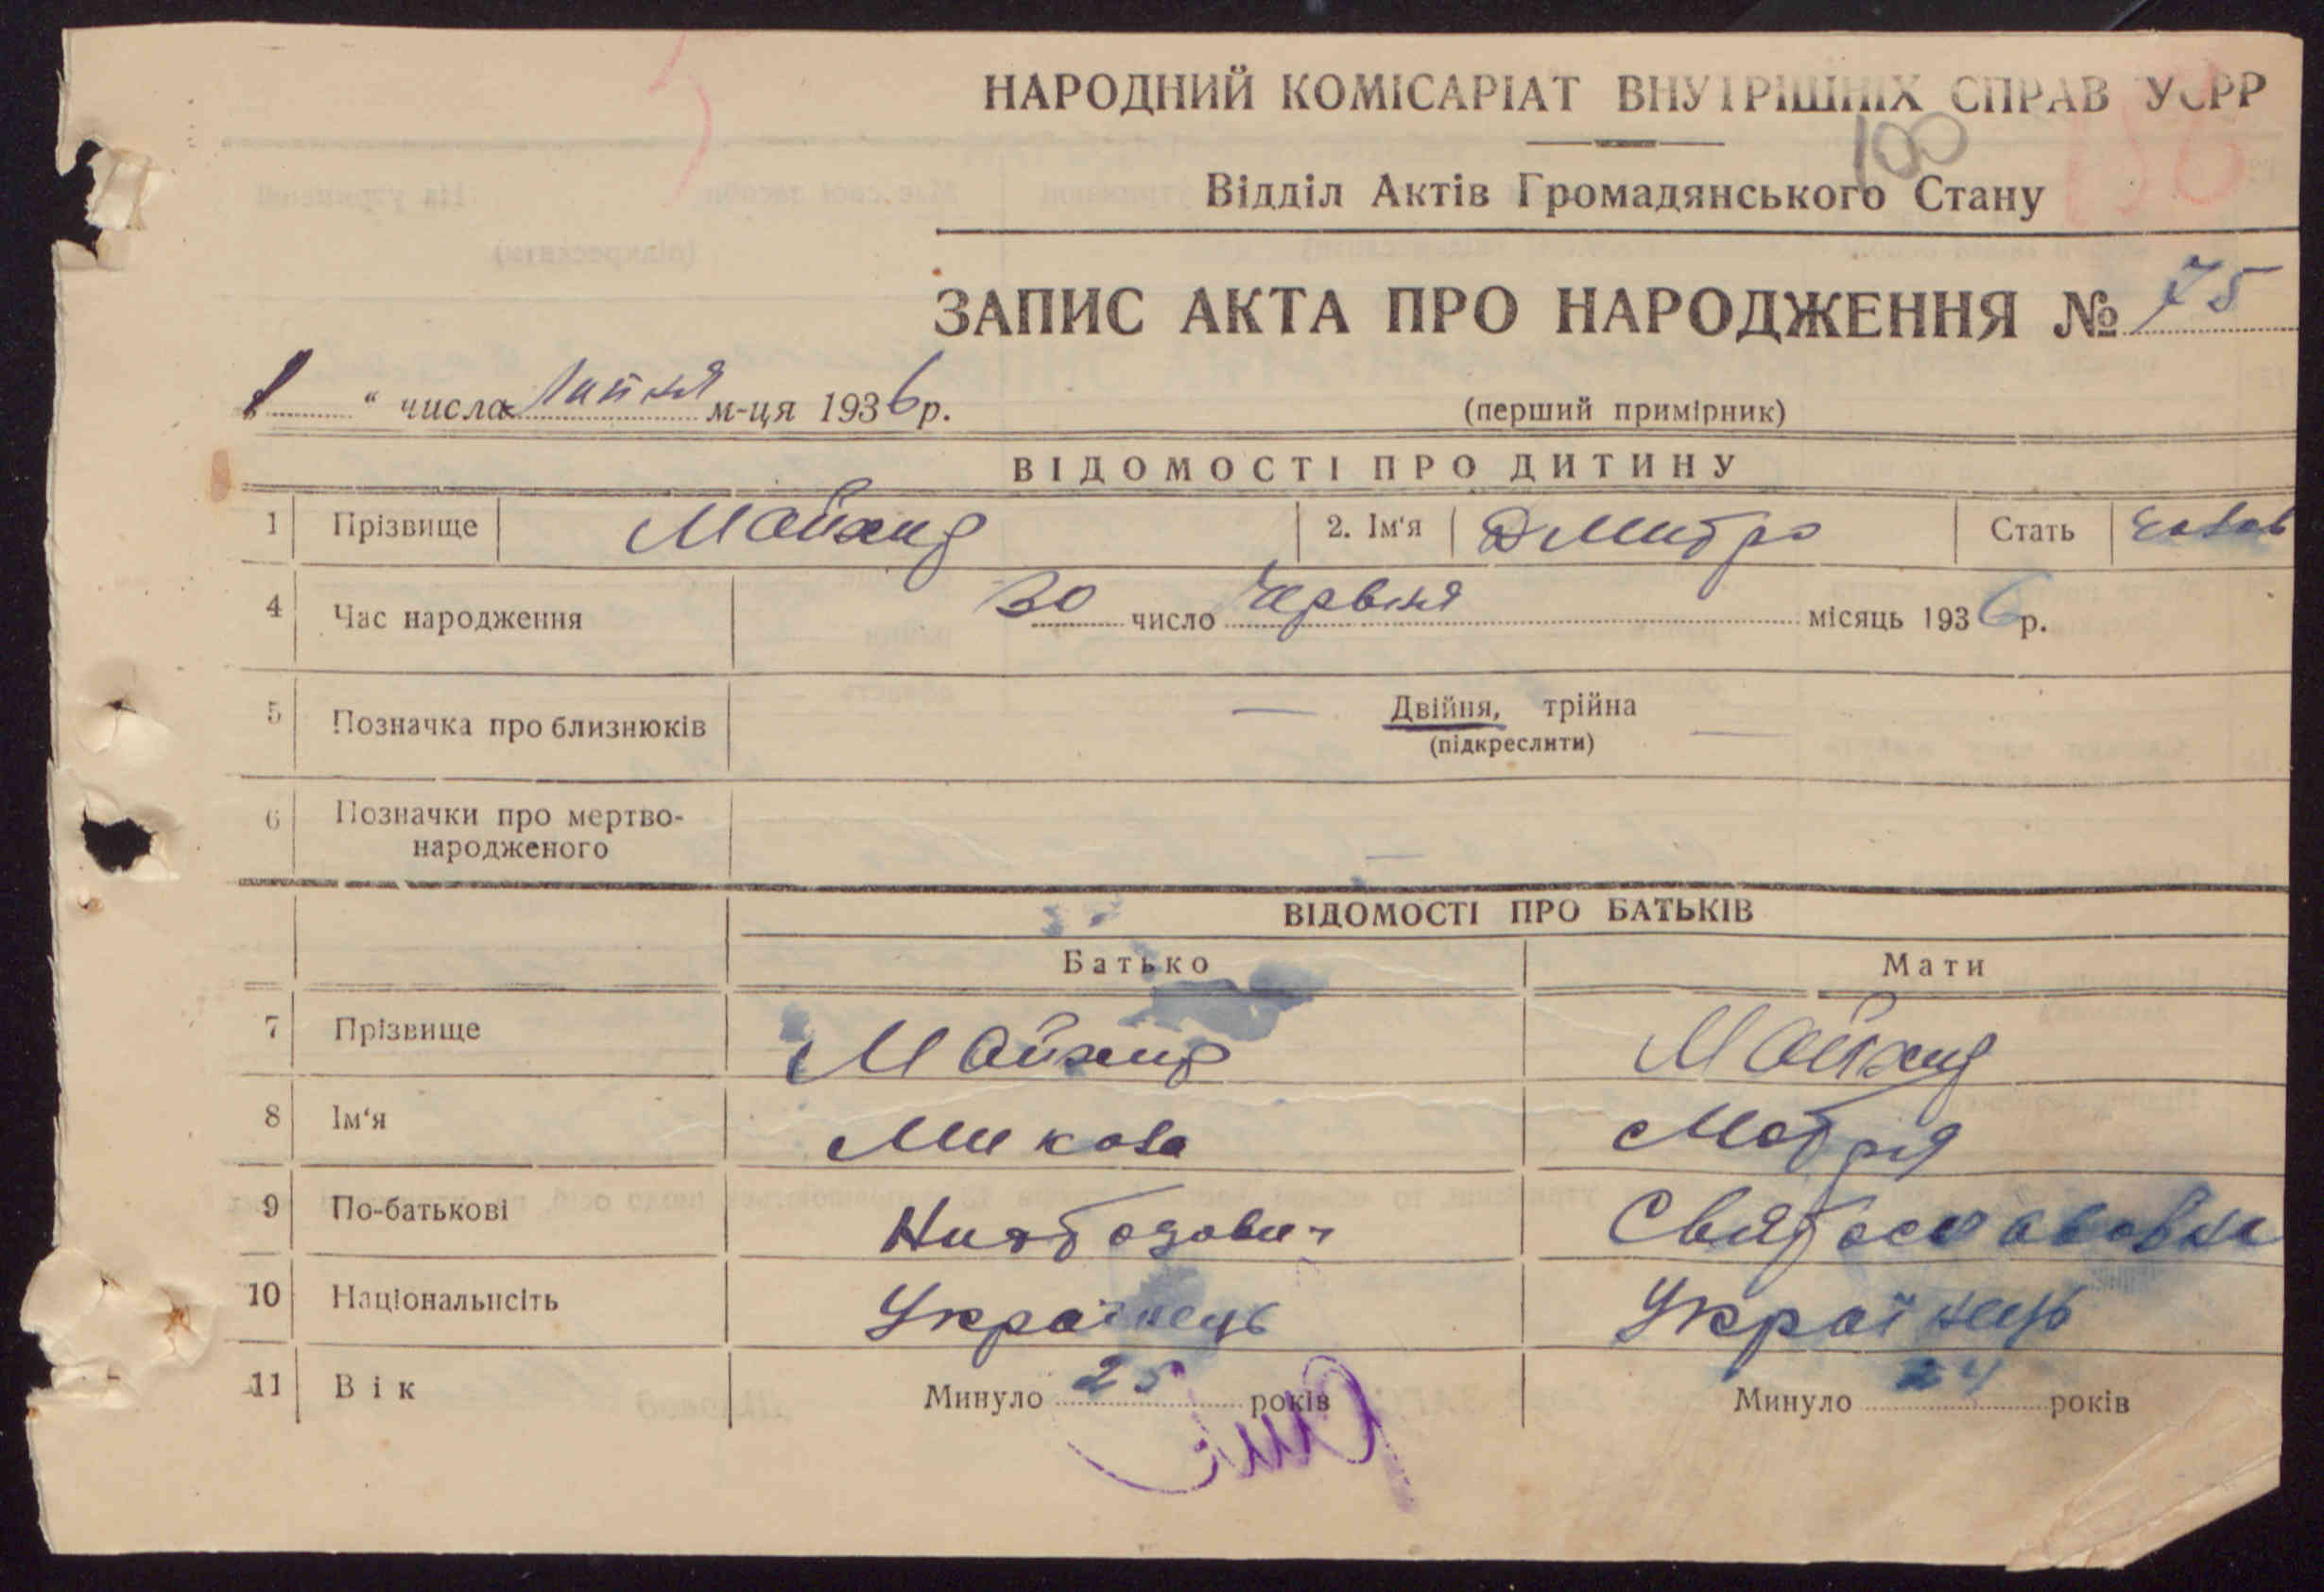 НАРОДНИЙ КОМІСАРІАТ ВНУТРІШНІХ СПРАВ УСРР
100
Відділ Актів Громадянського Стану
ЗАПИС АКТА ПРО НАРОДЖЕННЯ № 75
1 " числа Липня м-ця 1936 р.
(перший примірник)
ВІДОМОСТІ ПРО ДИТИНУ
1 Прізвище 2. Ім'я Дмитро Стать
4 Час народження 30 число Червня місяць 1936 р.
5 Позначка про близнюків — Двійня, трійна —
(підкреслити)
6 Позначки про мертво-
народженого —
ВІДОМОСТІ ПРО БАТЬКІВ
Батько Мати
7 Прізвище
8 Ім'я Микола Мотря
9 По-батькові
10 Національнсіть Українець Українець
11 Вік Минуло 25 років Минуло 24 років